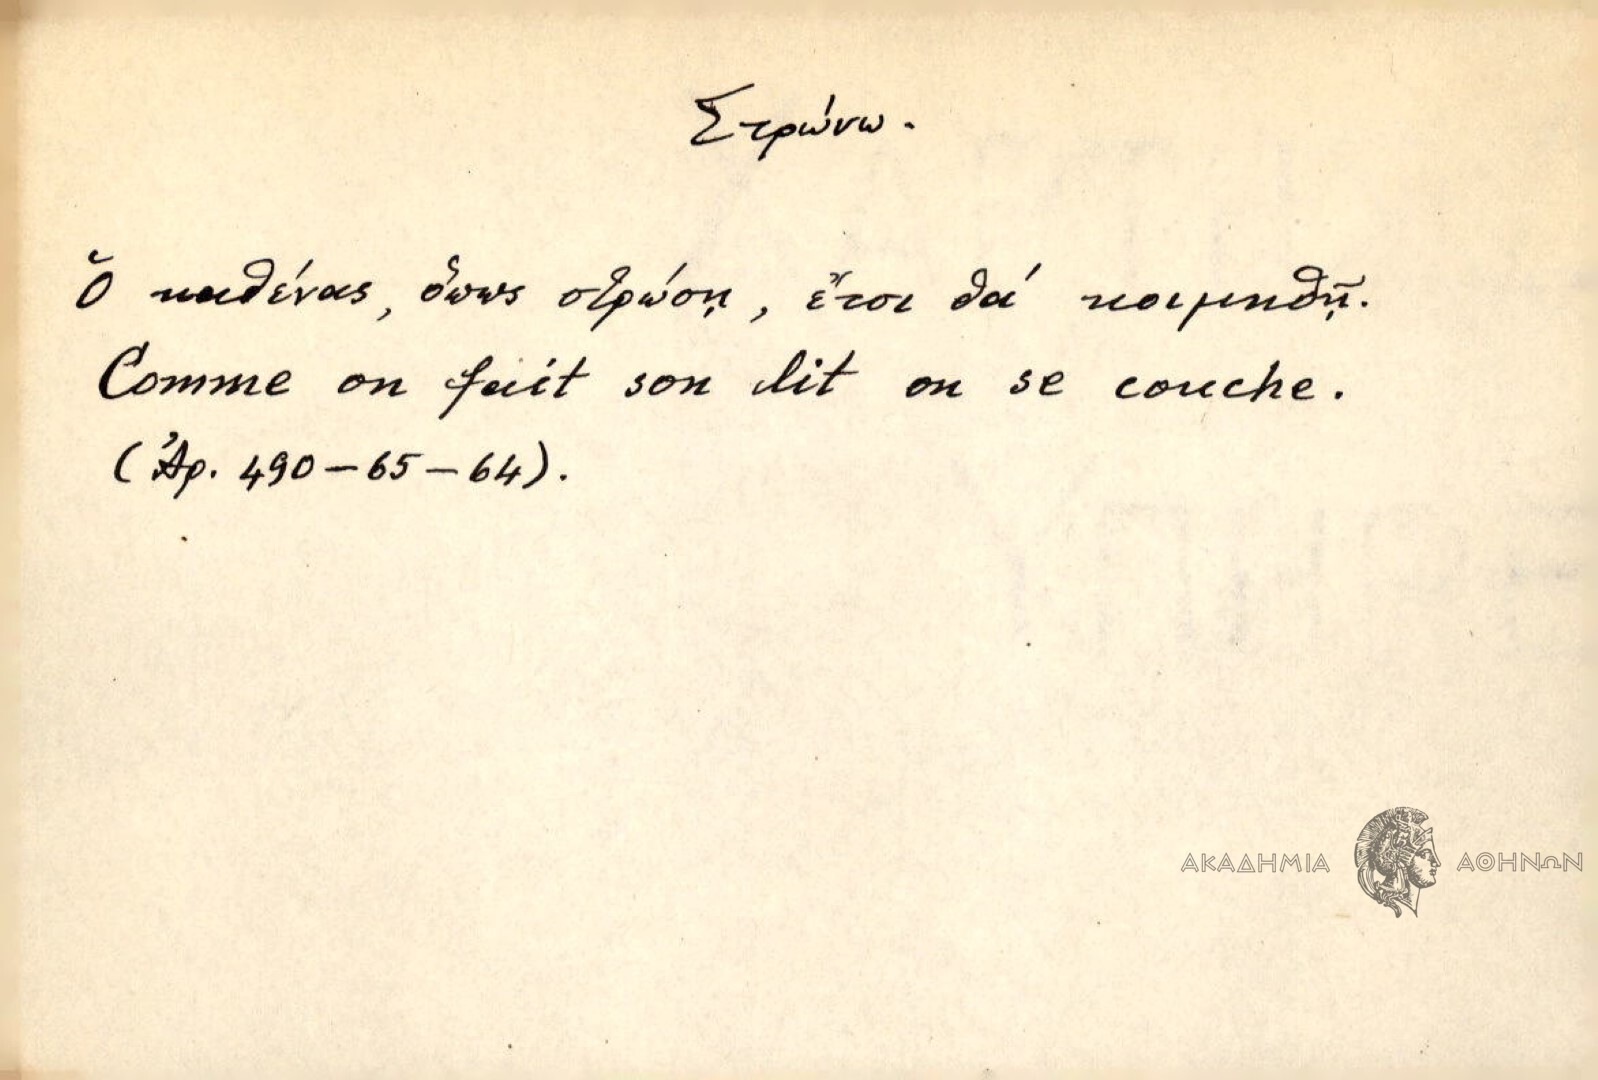 Στρώνω.
Ὁ καθένας, ὅπως στρώσῃ, ἔτσι θά κοιμηθῇ.
Comme on fait son lit on se couche.
(Ἀρ. 490-65-64).
ΑΚΑΔΗΜΙΑ ΑΘΗΝΩΝ